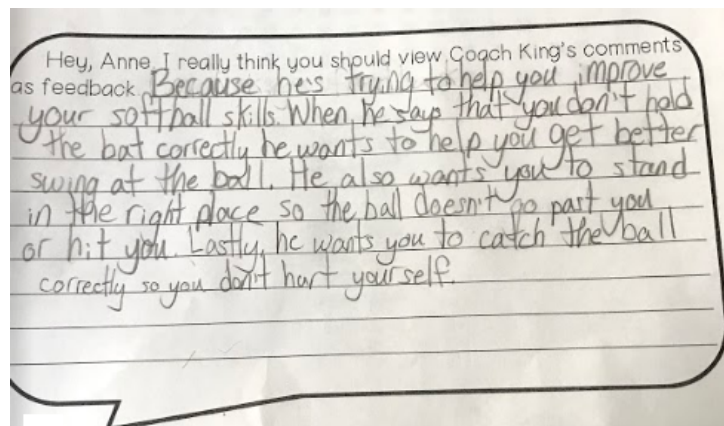 Hey, Anne, I really think you should view Coach King's comments
as feedback Because he's trying to help you improve
your softball skills. When, he says that you don't hold
the bat correctly he wants to help you get better
swing at the ball. He also wants you to stand
in the right place so the ball doesn't go past you
or hit you. Lastly, he wants you to catch the ball
correctly so you don't hurt yourself.